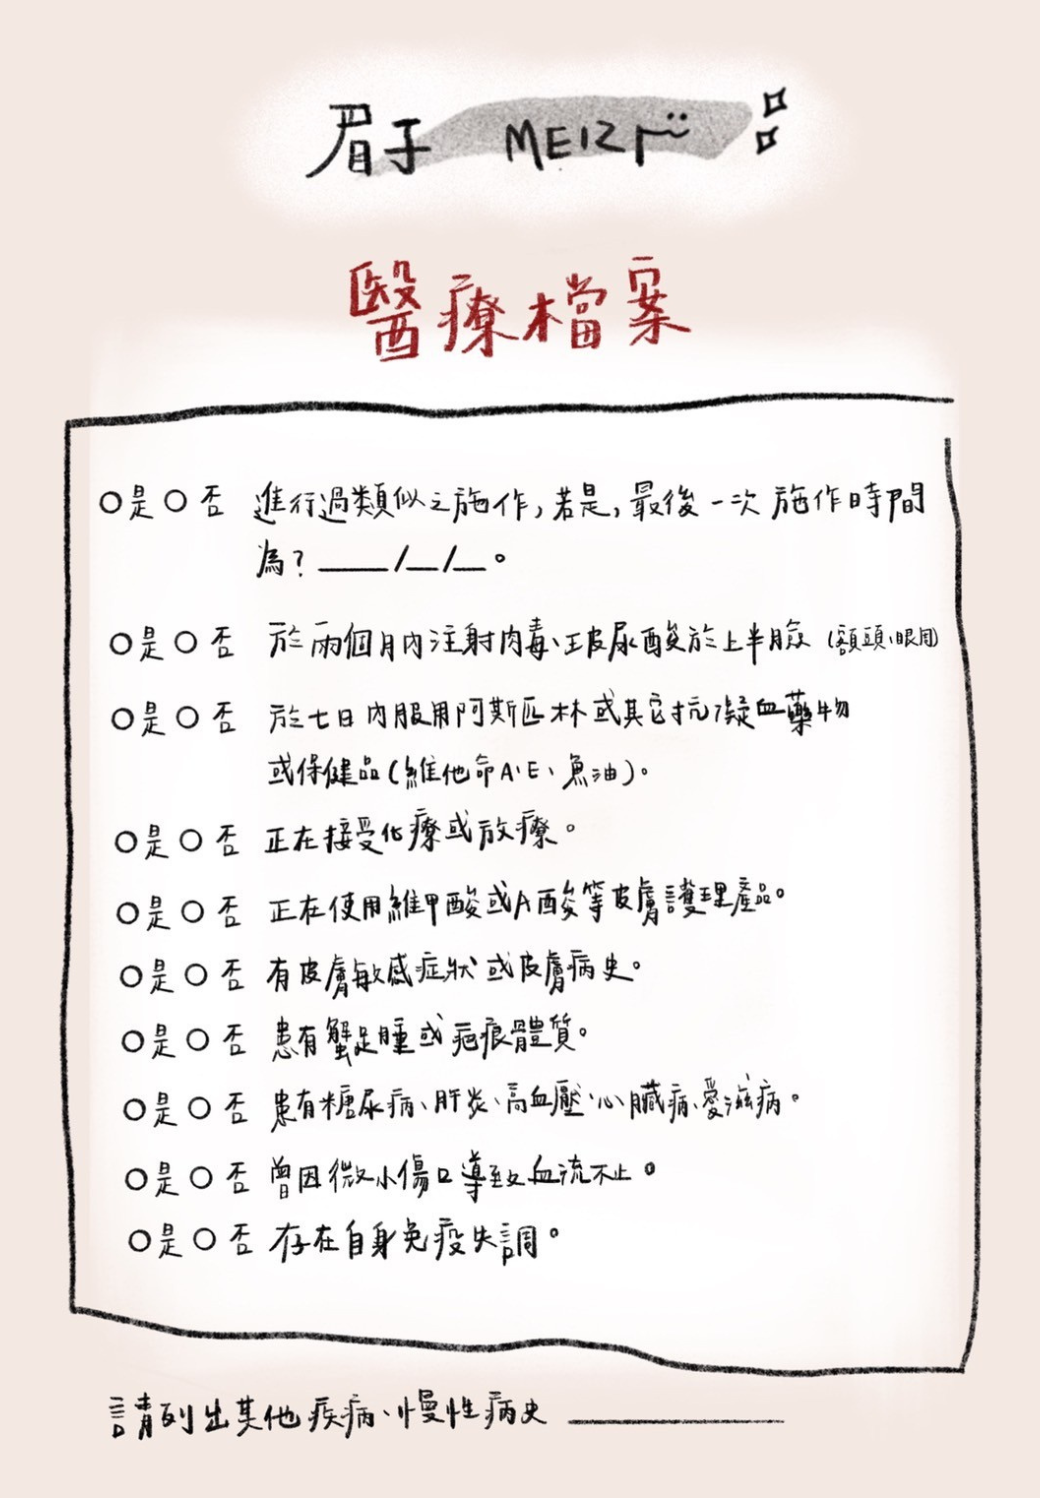 眉子 MEIZI
醫療檔案
○是○否 進行過類似之施作,若是,最後一次施作時間
為?____/__/__。
○是○否 於兩個月內注射肉毒、玻尿酸於上半臉(額頭、眼周)
○是○否 於七日內服用阿斯匹林或其它抗凝血藥物
或保健品(維他命A、E、魚油)。
○是○否 正在接受化療或放療。
○是○否 正在使用維甲酸或A酸等皮膚護理產品。
○是○否 有皮膚敏感症狀或皮膚病史。
○是○否 患有蟹足腫或疤痕體質。
○是○否 患有糖尿病、肝炎、高血壓、心臟病、愛滋病。
○是○否 曾因微小傷口導致血流不止。
○是○否 存在自身免疫失調。
請列出其他疾病、慢性病史 ________